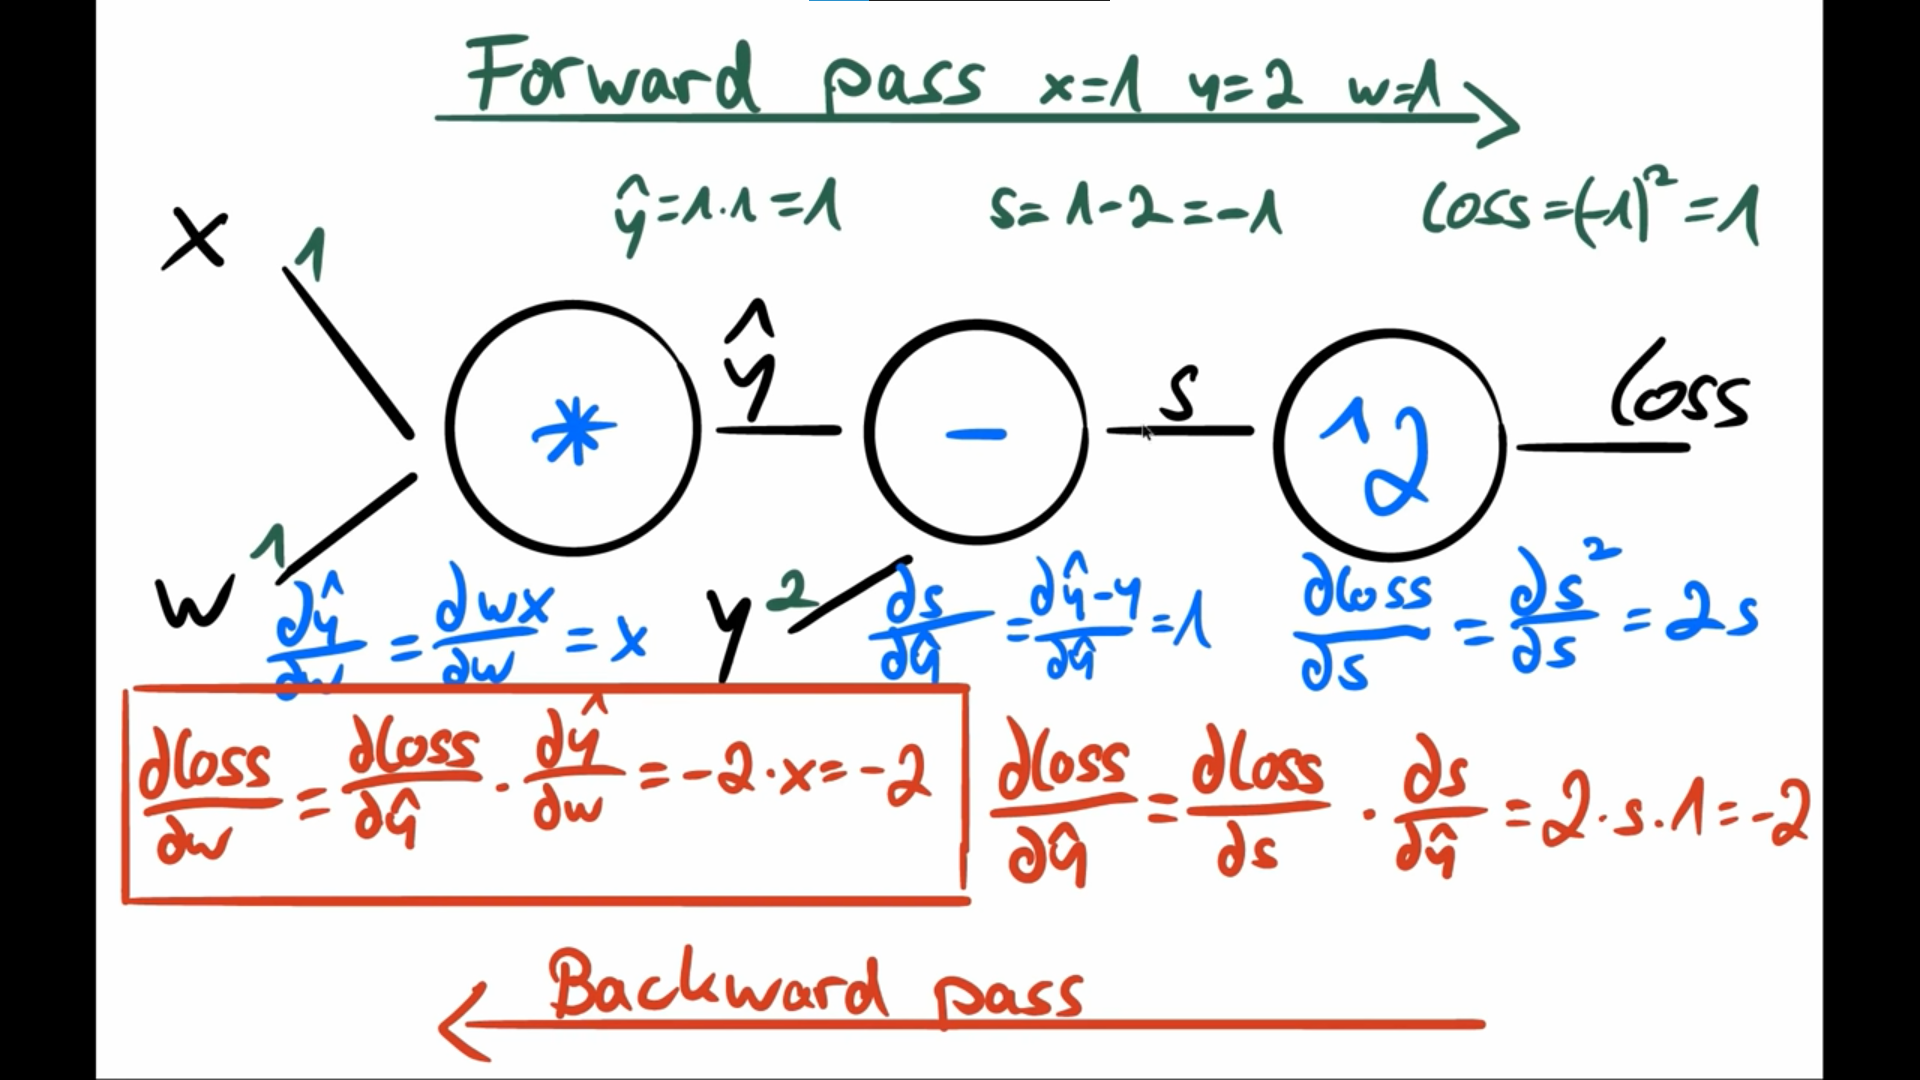 Forward pass x=1 y=2 w=1
ŷ=1·1=1 s=1-2=-1 loss=(-1)²=1
x 1
ŷ s loss
* - ^2
w 1 y 2
∂ŷ/∂w = ∂wx/∂w = x ∂s/∂ŷ = ∂ŷ-y/∂ŷ = 1 ∂loss/∂s = ∂s²/∂s = 2s
∂loss/∂w = ∂loss/∂ŷ · ∂ŷ/∂w = -2·x = -2 ∂loss/∂ŷ = ∂loss/∂s · ∂s/∂ŷ = 2·s·1 = -2
Backward pass